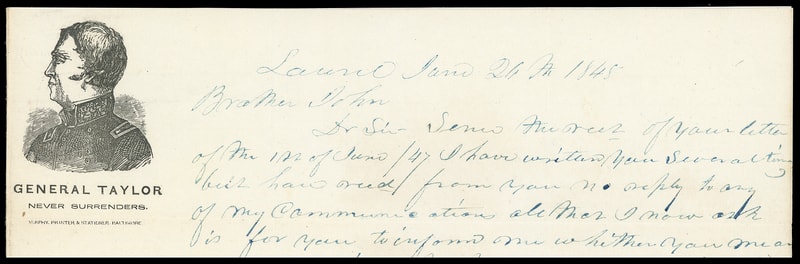 GENERAL TAYLOR
NEVER SURRENDERS.
MURPHY, PRINTER & STATIONER, BALTIMORE
Laurel June 26th 1848
Brother John
Dr Sir Since the rect of your letter
of the 1st of June /47 I have written you several
but have recd from you no reply to any
of my Communications all that I now ask
is for you to inform me whither you mean